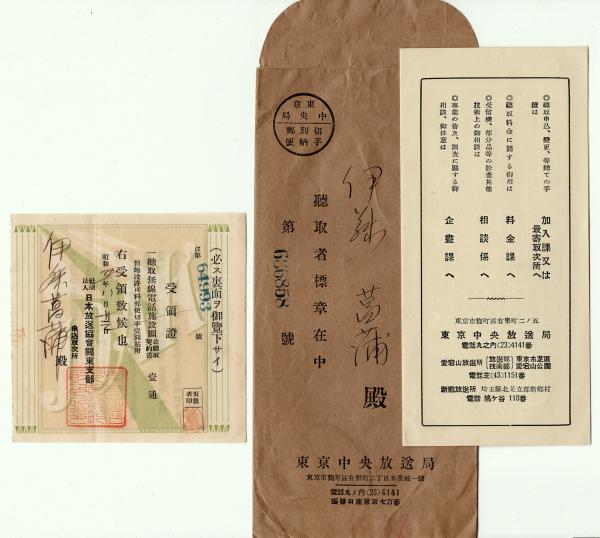 (必ス裏面ヲ御覧下サイ)
第64993號
受領證
一聽取無線電話施設願並聽取契約書 壹通
但施設許可料郵便切手壹圓貼附
右受領致候也
昭和
社團法人 日本放送協會關東支部
申込取次所
伊藤菖蒲 殿
取扱者印
東京中央局
切手別納郵便
伊藤菖蒲 殿
聽取者標章在中
第 號
東京中央放送局
東京市麹町區有樂町二丁目五番地一號
電話丸ノ内(23)4141
振替口座東京七万番
◎聽取申込、變更、等總ての手續は
加入課又は最寄取次所へ
◎聽取料金に關する御用は
料金課へ
◎受信機、部分品等の診査其他技術上の御相談は
相談係へ
◎事業の普及、調査に關する御相談、御注意は
企畫課へ
東京市麹町區有樂町二ノ五
東京中央放送局
電話丸之内(23)4141番
愛宕山放送所 {放送部 技術部} 東京市芝區愛宕山公園
電話芝(43)1151番
新郷放送所 埼玉縣北足立郡新郷村
電話 鳩ケ谷 118番